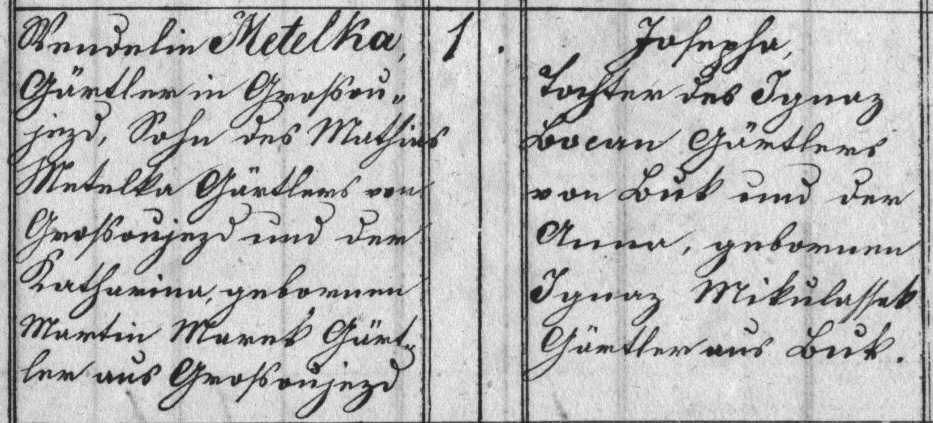 Wendelin Metelka,
Gärtler in Großou„
jezd, Sohn des Mathias
Metelka Gärtlers von
Großoujezd und der
Katharina, gebornen
Martin Marek Gärt„
ler aus Großoujezd
1.
Josepha,
Tochter des Ignaz
Bocan Gärtlers
von Buk und der
Anna, gebornen
Ignaz Mikulassek
Gärtler aus Buk.